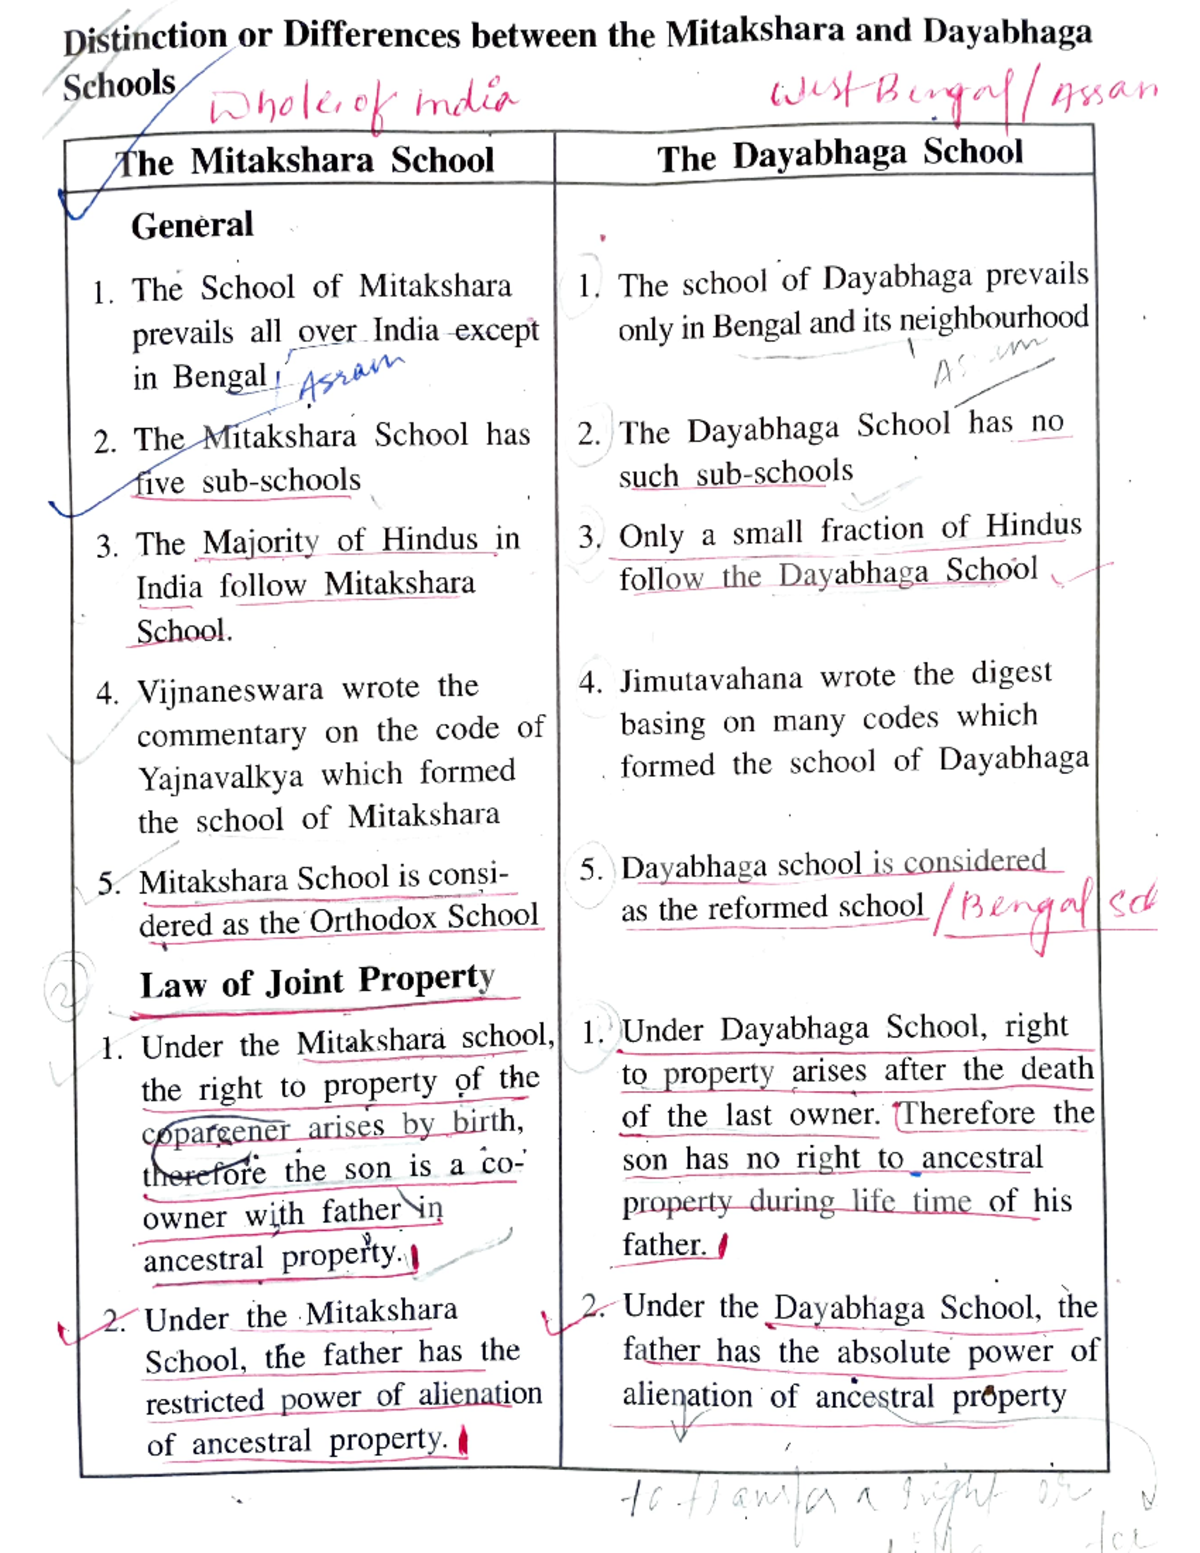 Distinction or Differences between the Mitakshara and Dayabhaga
Schools
Whole of india
West Bengal / Assam
The Mitakshara School
General
1. The School of Mitakshara
prevails all over India except
in Bengal
Assam
2. The Mitakshara School has
five sub-schools
3. The Majority of Hindus in
India follow Mitakshara
School.
4. Vijnaneswara wrote the
commentary on the code of
Yajnavalkya which formed
the school of Mitakshara
5. Mitakshara School is consi-
dered as the Orthodox School
2
Law of Joint Property
1. Under the Mitakshara school,
the right to property of the
copargener arises by birth,
therefore the son is a co-
owner with father in
ancestral property.
2. Under the Mitakshara
School, the father has the
restricted power of alienation
of ancestral property.
The Dayabhaga School
1. The school of Dayabhaga prevails
only in Bengal and its neighbourhood
2. The Dayabhaga School has no
such sub-schools
3. Only a small fraction of Hindus
follow the Dayabhaga School
4. Jimutavahana wrote the digest
basing on many codes which
formed the school of Dayabhaga
5. Dayabhaga school is considered
as the reformed school / Bengal Sch
1. Under Dayabhaga School, right
to property arises after the death
of the last owner. Therefore the
son has no right to ancestral
property during life time of his
father.
2. Under the Dayabhaga School, the
father has the absolute power of
alienation of ancestral property
to transfer a right or